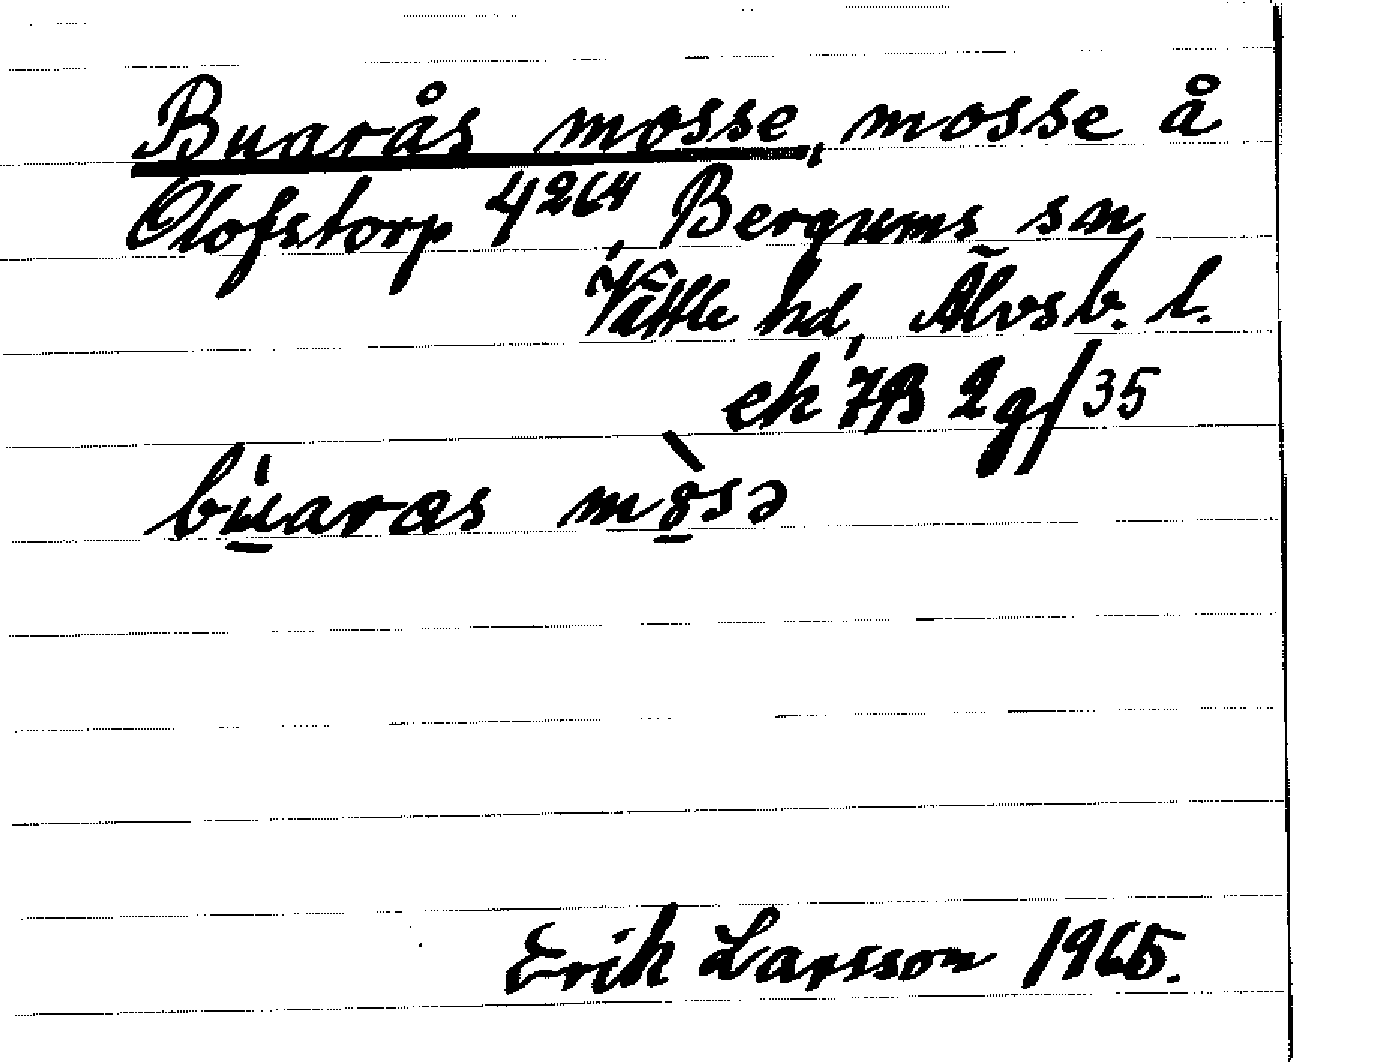 Buarås mosse, mosse å
Olofstorp 4264, Bergums sn,
Vättle hd, Älvsb. l.
ek 7B 2g/35
bu̲aras mo̲sə
Erik Larsson 1965.